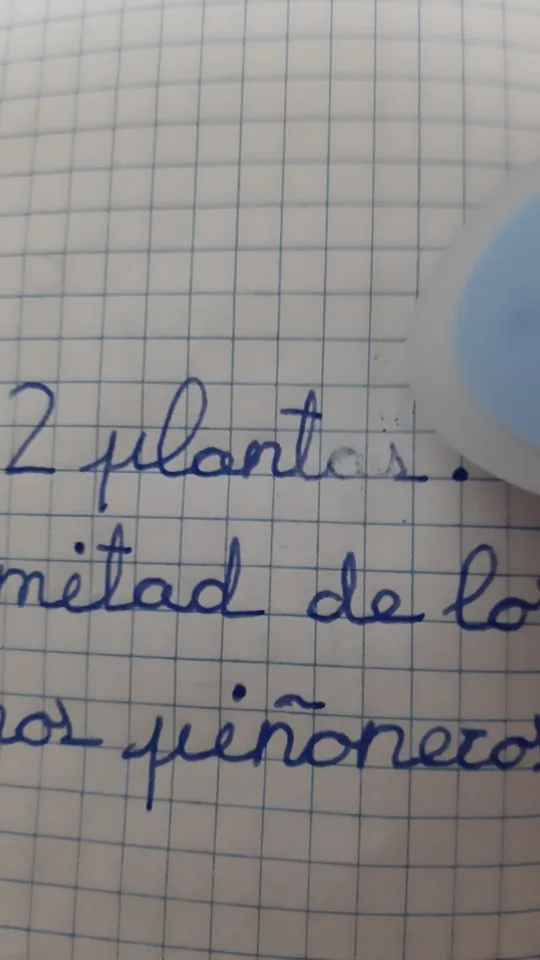 2 plantas.
mitad de lo
piñonero